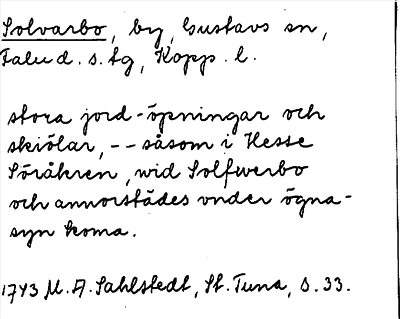 Solvarbo, by, Gustavs sn,
Falu d. s. tg, Kopp. l.
stora jord-öpningar och
skiölar, -- såsom i Hesse
Söråkren, wid Solfwerbo
och annorstädes vnder ögna-
syn koma.
1743 M. A. Sahlstedt, St. Tuna, s. 33.